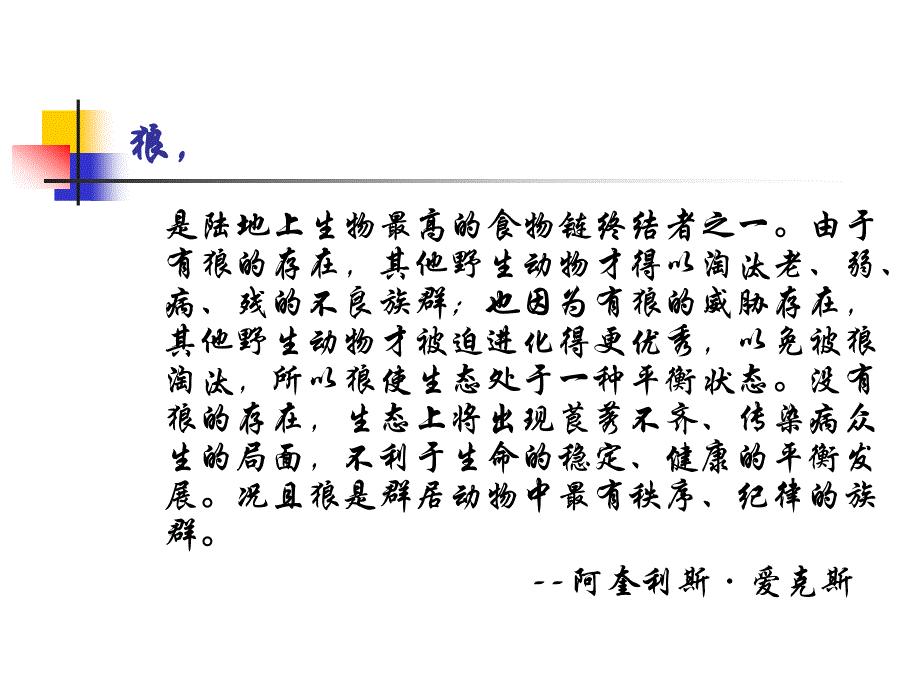 狼，
是陆地上生物最高的食物链终结者之一。由于
有狼的存在，其他野生动物才得以淘汰老、弱、
病、残的不良族群；也因为有狼的威胁存在，
其他野生动物才被迫进化得更优秀，以免被狼
淘汰，所以狼使生态处于一种平衡状态。没有
狼的存在，生态上将出现莨莠不齐、传染病众
生的局面，不利于生命的稳定、健康的平衡发
展。况且狼是群居动物中最有秩序、纪律的族
群。
--阿奎利斯·爱克斯